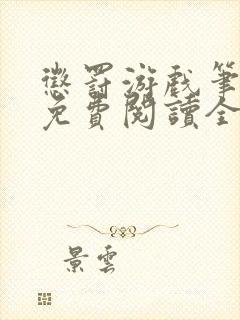 懲罰游戲筆
免費閱讀全
景雲